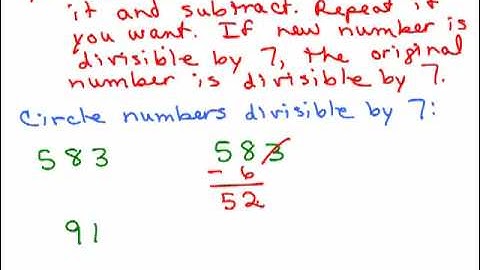 it and subtract. Repeat if
you want. If new number is
divisible by 7, the original
number is divisible by 7.
Circle numbers divisible by 7:
583 583
- 6
52
91